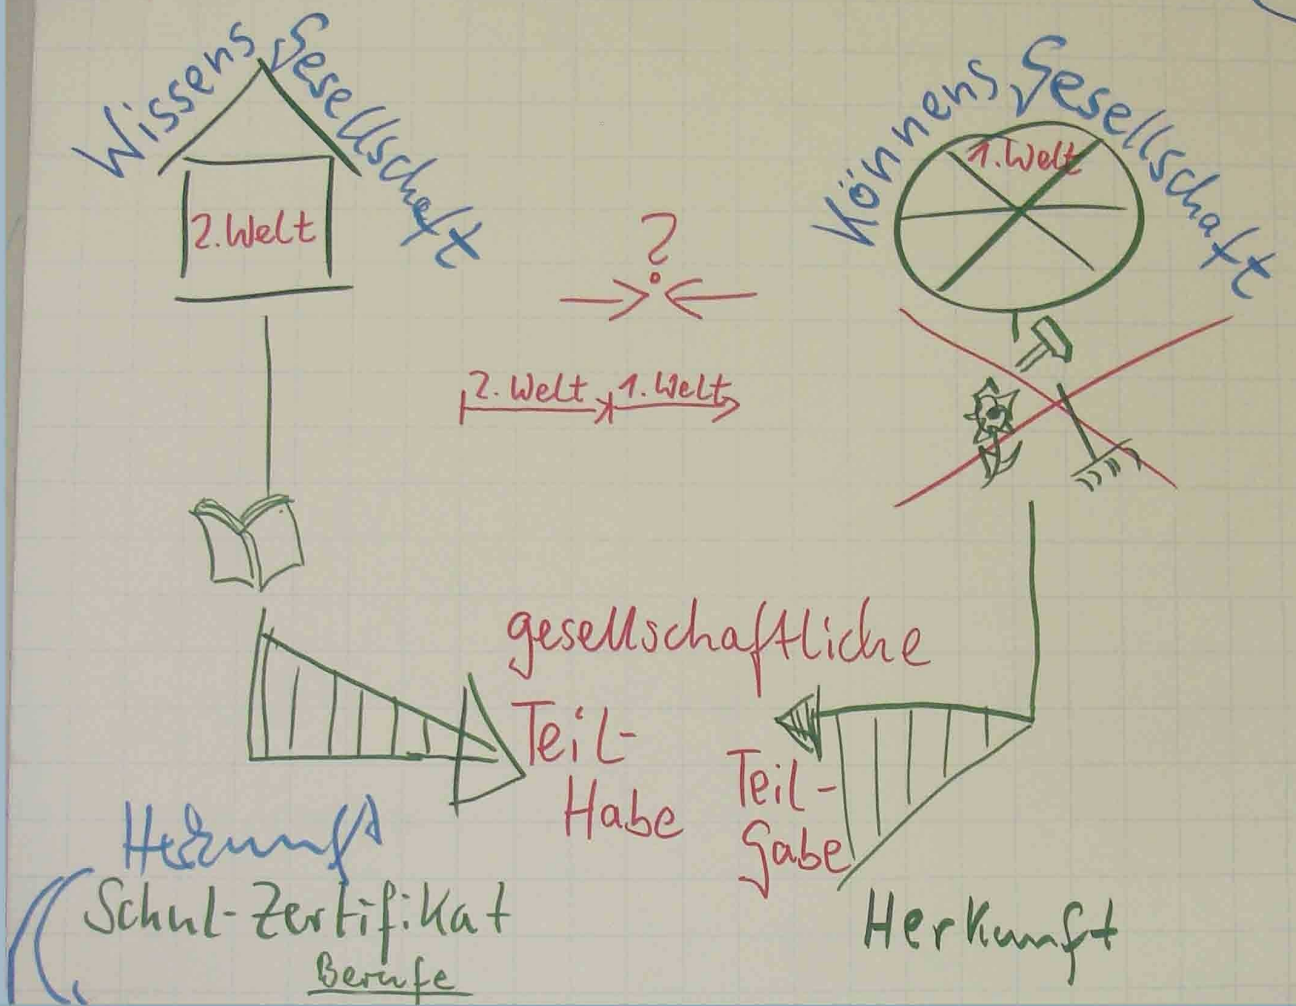 Wissens Gesellschaft
2. Welt
Könnens Gesellschaft
1. Welt
?
2. Welt 1. Welt
gesellschaftliche
Teil-
Habe
Teil-
Gabe
Herkunft
Schul-Zertifikat
Berufe
Herkunft